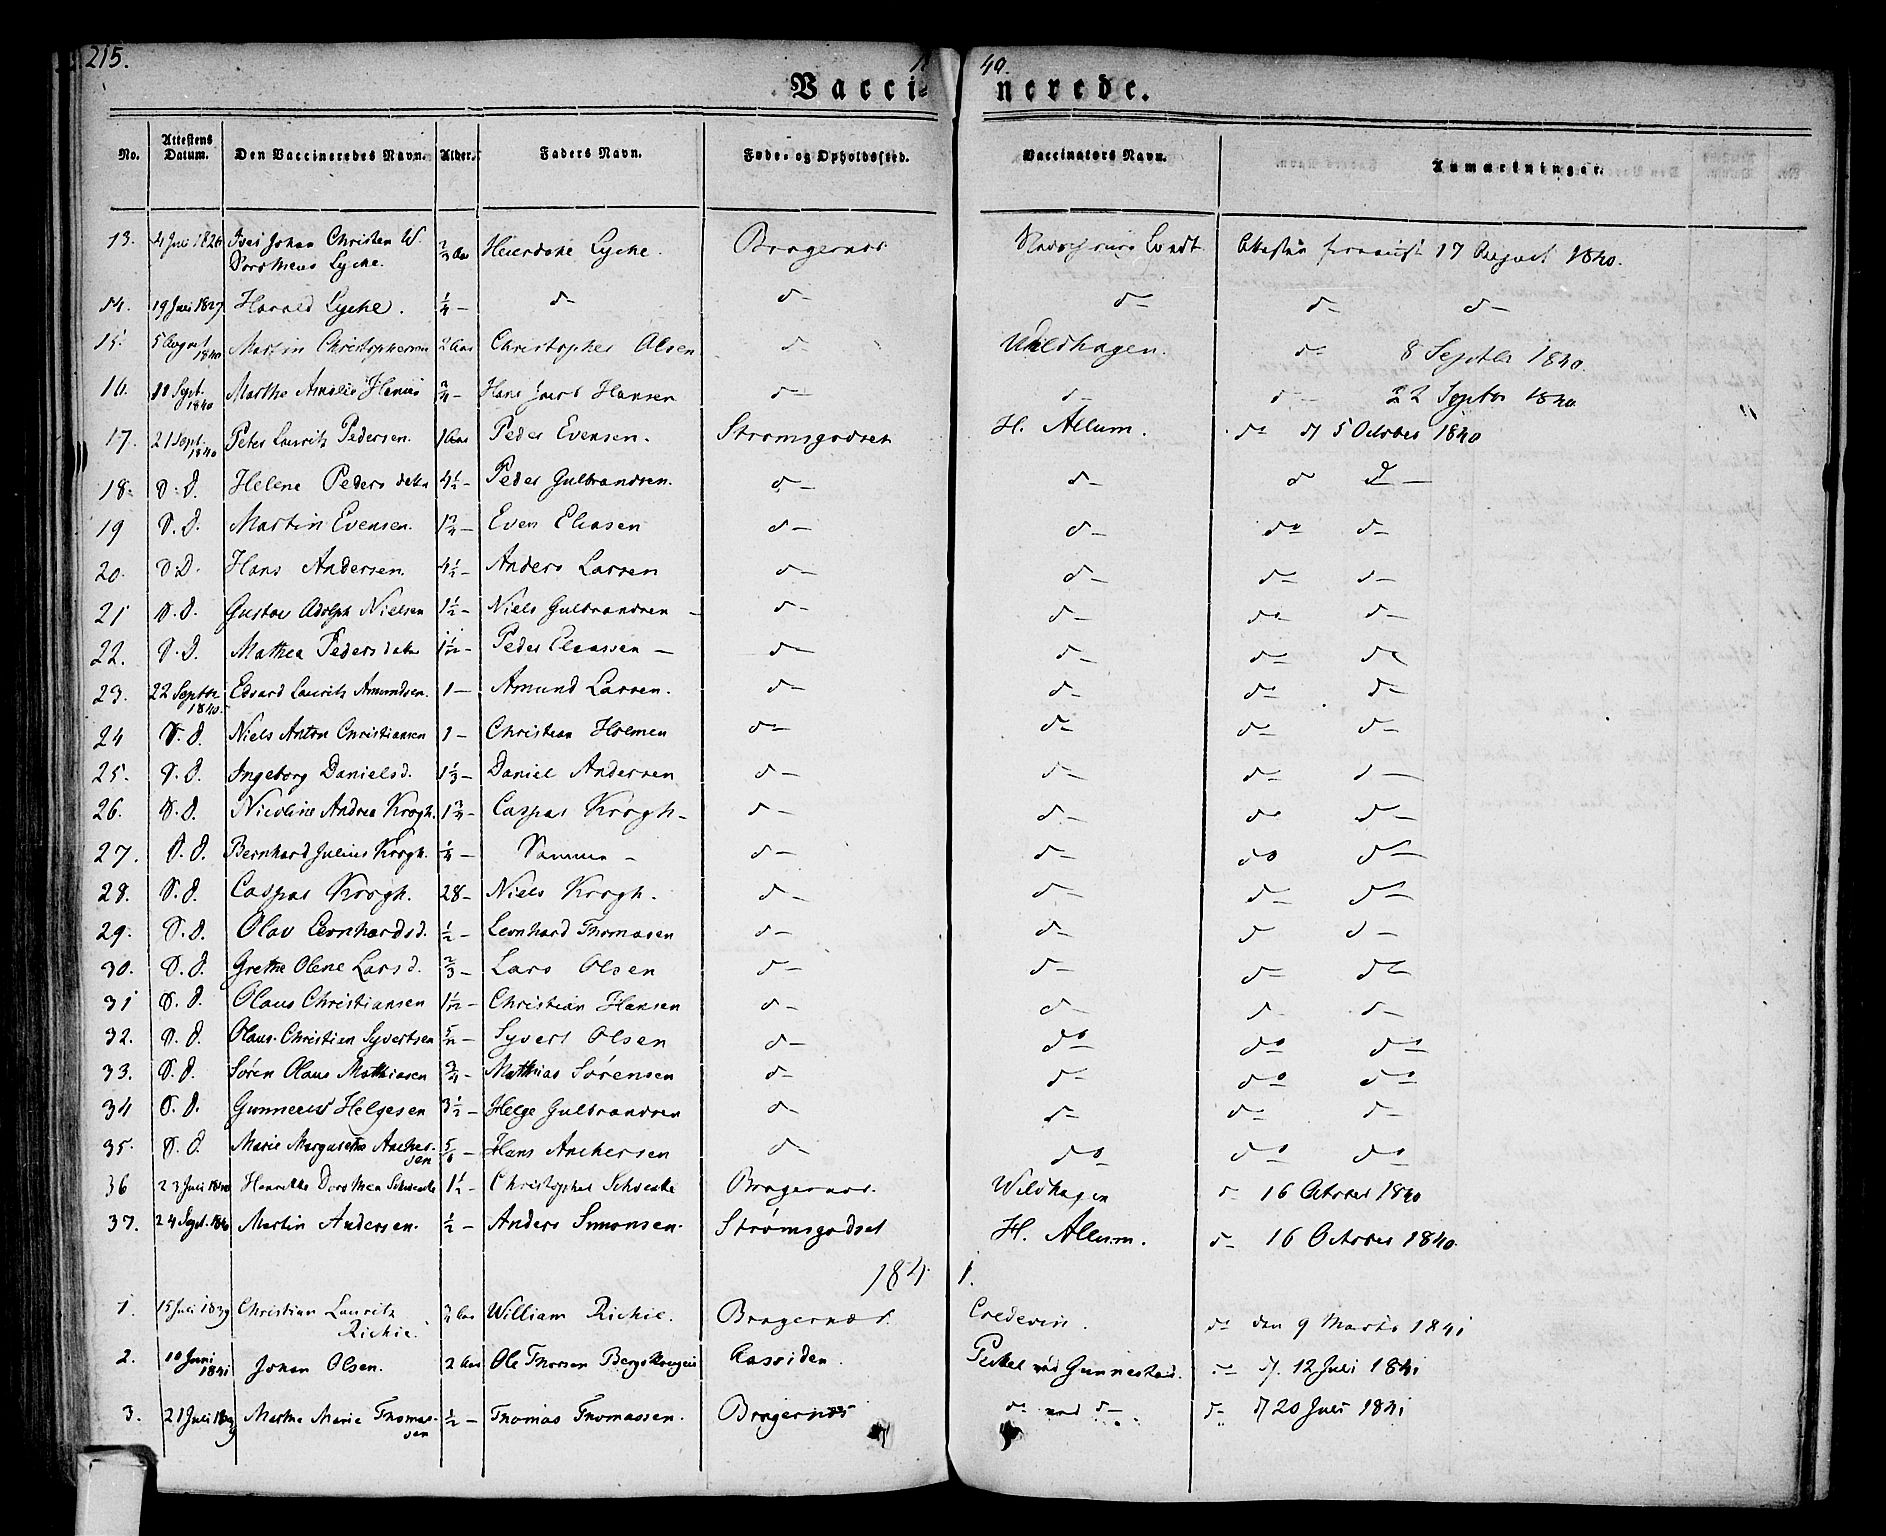 215. 18 40.
Vaccinerede.
No. Attestens Datum. Den Vaccineredes Navn. Alder. Faders Navn. Føde- og Opholdssted. Vaccinators Navn. Anmærkninger.
13. 4 Juli 1826 Johan Christen W. Lyche. Lyche. Bragernæs Lundt. 17 August 1840.
14. 19 Juli 1827 Harald Lyche. 1/4 – d– d– d– d– d–
15. 5 August 1840 Martin Christophersen 2 Aar Christopher Olsen d– Wildhagen. do 8 Septbr 1840.
16. 18 Sept. 1840 Marthe Amalie Hansen 3/4 – Hans Jacob Hansen d– d– d– 22 Septbr 1840
17. 21 Sept. 1840 Peter Lauritz Pedersen. 1 Aar Peder Evensen. Strømsgodset H. Allum. do d 5 October 1840
18. D. D. Helene Peders datter 4 1/2 – Peder Gulbrandsen. d– d– d d–
19 D. D. Martin Evensen. 1 3/4 – Even Eliasen d– d– do d–
20. D. D. Hans Andersen. 4 1/2 – Anders Larsen d– d– d– d–
21 D. D. Gustav Adolph Nielsen 1 1/2 – Niels Gulbrandsen – d– d– do d–
22. D. D. Mathea Pedersdatter 1 1/2 – Peder Eliassen – d– d– do do
23. 22 Septbr 1840. Edvard Lauritz Amundsen. 1 – Amund Larsen. d– d– do d–
24 D. D. Niels Anton Christiansen 1 – Christian Holmen d– d– d– d–
25. D. D. Ingeborg Daniels d. 1 1/3 – Daniel Andersen d– d– d– d–
26. D. D. Nicoline Andrea Krogh. 1 2/3 – Caspar Krogh – d– d– do d–
27. D. D. Bernhard Julius Krogh. 1/4 – Samme – d– d– do d–
28. D. D. Caspar Krogh. 28 – Niels Krogh. d– d– d– do
29. D. D. Olav Leonhards d. 1/2 – Leonhard Thomasen d– d– d d–
30. D. D. Grethe Olene Lars d. 2/3 – Lars Olsen d– d– d– do
31 D. D. Olaus Christiansen 1 1/2 – Christian Hansen d– d– d– d–
32. D. D. Olaus Christian Syvertsen – Syvert Olsen d– do do do
33. D. D. Søren Olaus Mathiasen 3/4 – Mathias Sørensen d– d– do do
34 D. D. Helgesen 3 1/2 – Helge Gulbrandsen d– d– d– d–
35. D. D. Marie Margarethe Anchersen 5/6 – Hans Anchersen d– do do do
36 23 Juli 1840 Henriette Dorothea 1 1/2 – Christopher Bragernæs. Wildhagen d– 16 October 1840
37. 24 Sept. 1840 Martin Andersen. 1/2 – Anders Simonsen. Strømsgodset H. Allum. d– 16 October 1840.
184 1.
1. 15 Juli 1839 Christian Lauritz Richie. Aar William Richie. Bragernæs. do den 9 Marts 1841
2. 10 Juni 1841 Johan Olsen. 2 Aar Ole Thorsen Aassiden. ved Gunnestad. do d. 12 Juli 1841
3. 21 Juli 1839 Marthe Marie Thomassen 1/2 – Thomas Thomassen. Bragernæs do ved d– d– d 20 Juli 1841